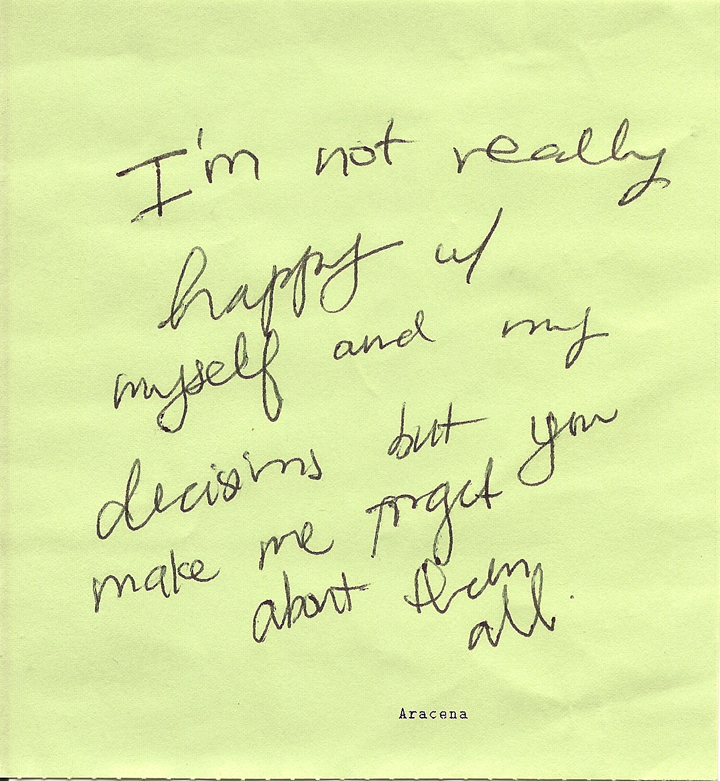 I'm not really
happy w/
myself and my
decisions but you
make me forget
about them
all.
Aracena